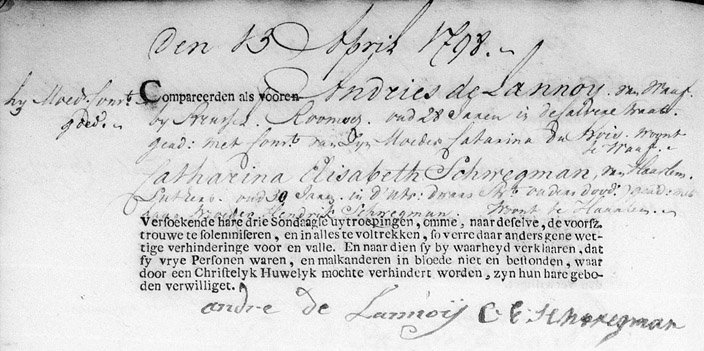 den 13 April 1798.
hy Moed: Cons:t
goed.
Compareerden als vooren Andries de Lannoy. van
Rooms. oud 28 Jaaren in de
gead: met Cons:t van Zyn Moeder Catarina du Bois. Woont
te
Catharina Elisabeth Schregman, van Haarlem
Luthers. oud 30 Jaar. in d'Utr: dwars St:t ouders dood. gead: met
Hendrik Schregman. Woont te Haarlem.
Versoekende hare drie Sondaagse uytroepingen, omme, naar deselve, de voorsz.
trouwe te solemniseren, en in alles te voltrekken, so verre daar anders gene wet-
tige verhinderinge voor en valle. En naar dien sy by waarheyd verklaaren, dat
sy vrye Personen waren, en malkanderen in bloede niet en bestonden, waar
door een Christelyk Huwelyk mochte verhindert worden, zyn hun hare gebo-
den verwilliget.
andre de Lannoÿ C. E. Schregman